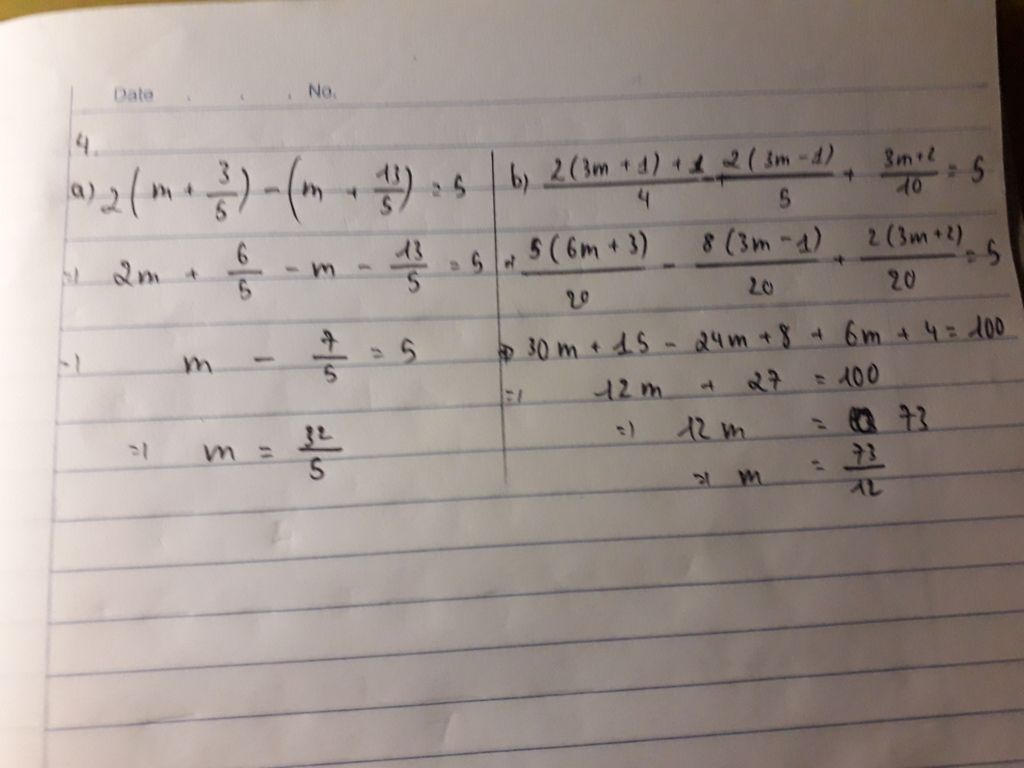 Date . . . No.
4.
a) 2(m + 3/5) - (m + 13/5) = 5
=> 2m + 6/5 - m - 13/5 = 5
=> m - 7/5 = 5
=> m = 32/5
b) (2(3m + 1) + 1)/4 - 2(3m - 1)/5 + (3m + 2)/10 = 5
=> 5(6m + 3)/20 - 8(3m - 1)/20 + 2(3m + 2)/20 = 5
=> 30m + 15 - 24m + 8 + 6m + 4 = 100
=> 12m + 27 = 100
=> 12m = 73
=> m = 73/12